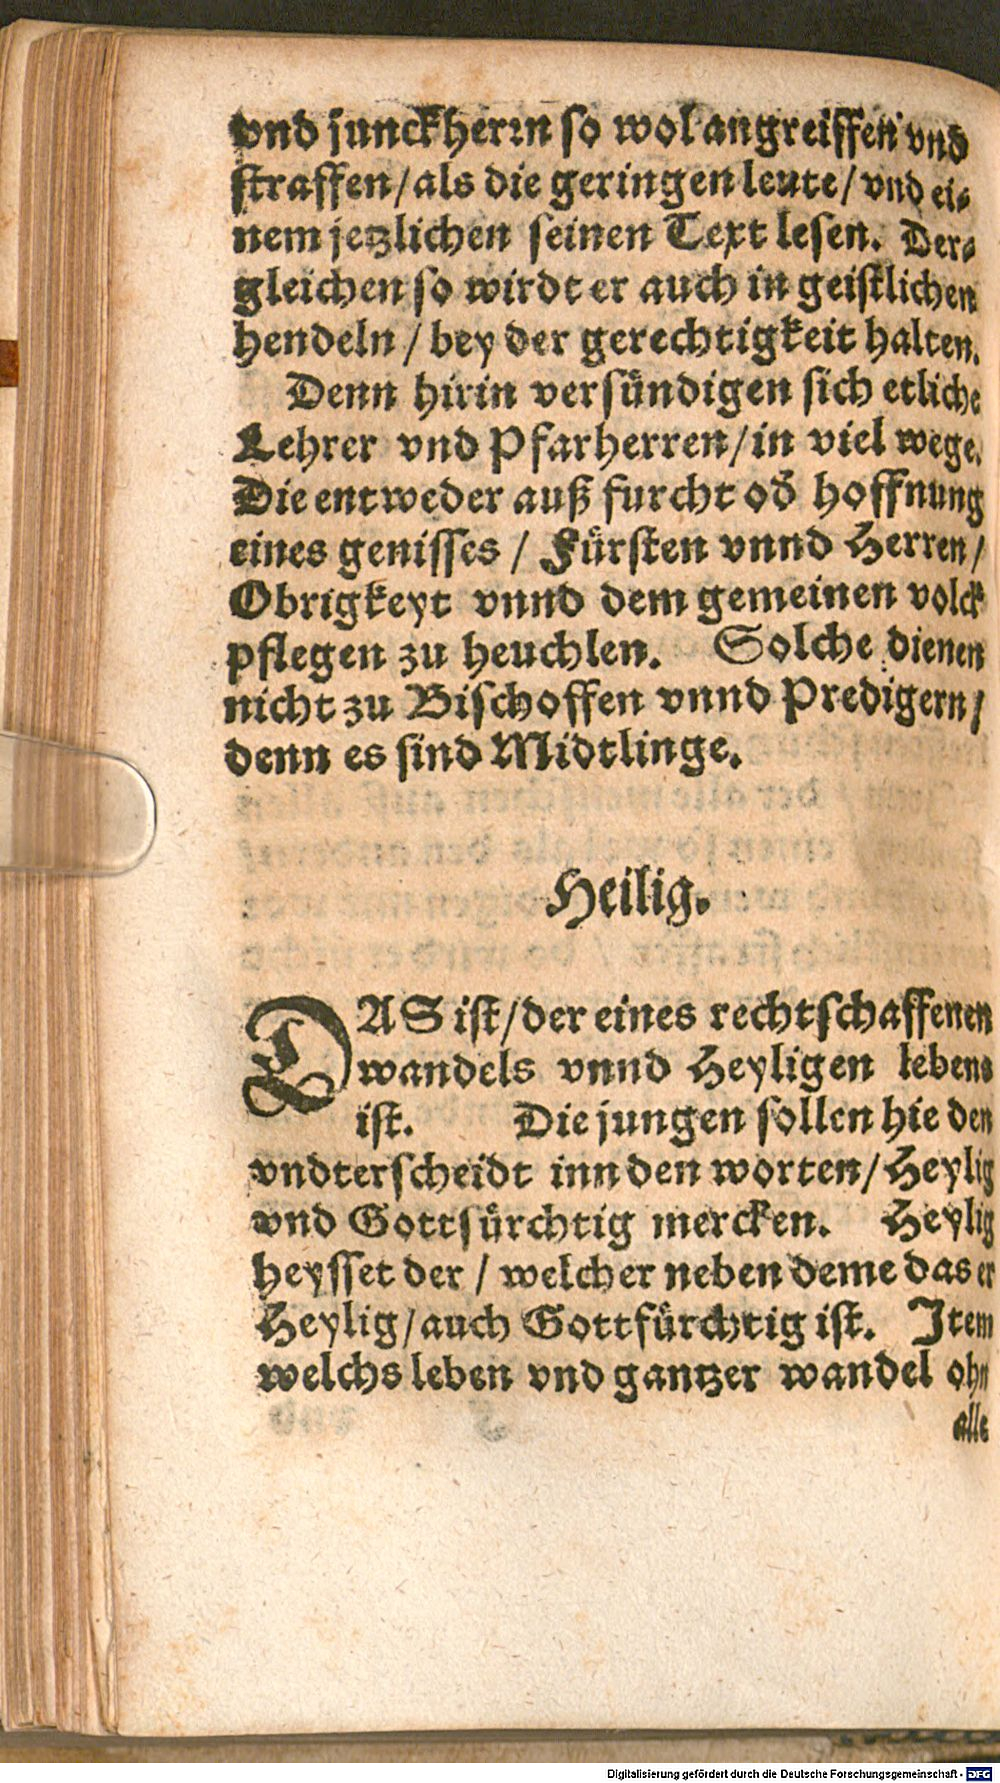 vnd junckherrn so wol angreiffen vnd
straffen/als die geringen leute/vnd ei-
nem jetzlichen seinen Text lesen. Der-
gleichen so wirdt er auch in geistlichen
hendeln / bey der gerechtigkeit halten.
Denn hirin versündigen sich etliche
Lehrer vnd Pfarherren/in viel wege.
Die entweder auß furcht od̄ hoffnung
eines genisses / Fürsten vnnd Herren/
Obrigkeyt vnnd dem gemeinen volck
pflegen zu heuchlen. Solche dienen
nicht zu Bischoffen vnnd Predigern/
denn es sind Midtlinge.
Heilig.
DAS ist/der eines rechtschaffenen
wandels vnnd Heyligen lebens
ist. Die jungen sollen hie den
vndterscheidt inn den worten/Heylig
vnd Gottsürchtig mercken. Heylig
heysset der / welcher neben deme das er
Heylig/auch Gottfürchtig ist. Item
welchs leben vnd gantzer wandel ohn
alle
Digitalisierung gefördert durch die Deutsche Forschungsgemeinschaft - DFG